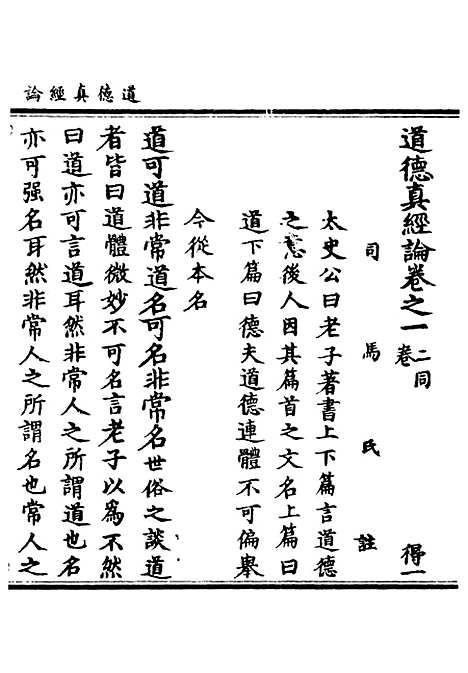 道德真經論
道德真經論卷之一 二同卷 得一
司馬氏註
太史公曰老子著書上下篇言道德
之意後人因其篇首之文名上篇曰
道下篇曰德夫道德連體不可偏舉
今從本名
道可道非常道名可名非常名世俗之談道
者皆曰道體微妙不可名言老子以爲不然
曰道亦可言道耳然非常人之所謂道也名
亦可强名耳然非常人之所謂名也常人之